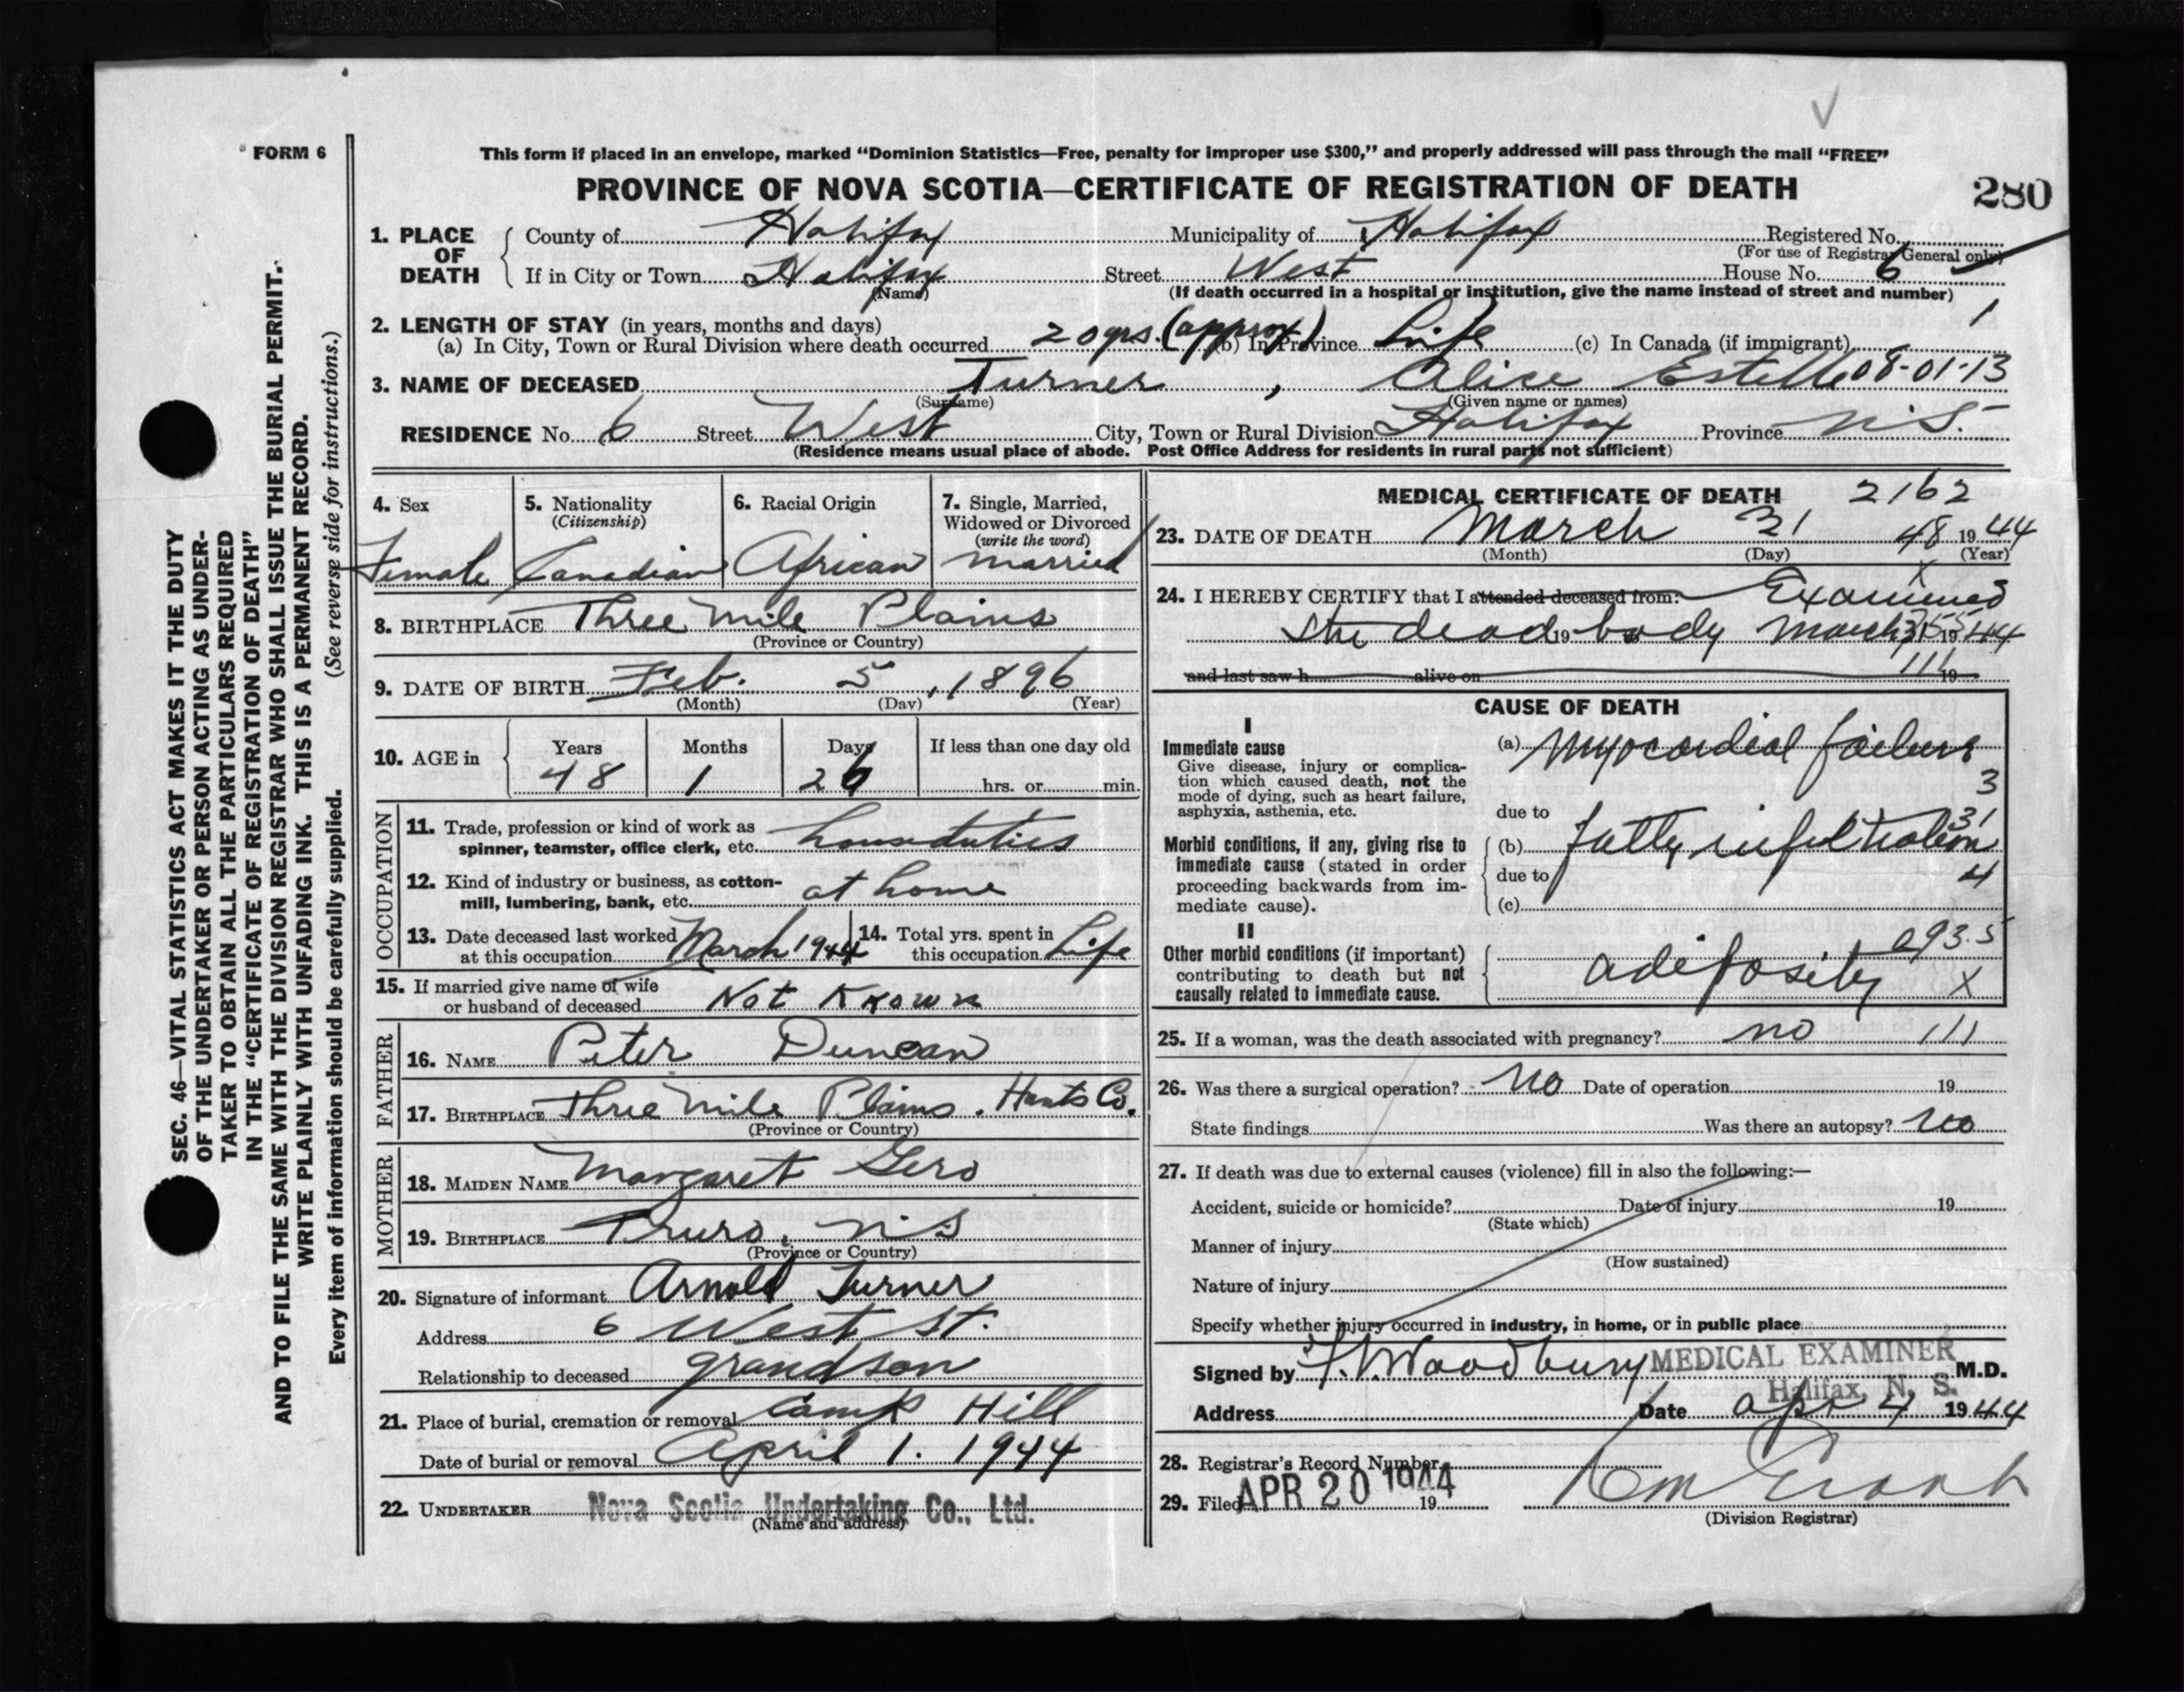 FORM 6
This form if placed in an envelope, marked “Dominion Statistics—Free, penalty for improper use $300,” and properly addressed will pass through the mail “FREE”
PROVINCE OF NOVA SCOTIA—CERTIFICATE OF REGISTRATION OF DEATH
280
1. PLACE OF DEATH
County of Halifax Municipality of Halifax Registered No.
(For use of Registrar General only)
If in City or Town Halifax Street West House No. 6
(Name) (If death occurred in a hospital or institution, give the name instead of street and number)
2. LENGTH OF STAY (in years, months and days) 1
(a) In City, Town or Rural Division where death occurred 20 yrs. (approx) (b) In Province Life (c) In Canada (if immigrant)
3. NAME OF DECEASED Turner, Alice Estelle 08-01-13
(Surname) (Given name or names)
RESIDENCE No. 6 Street West City, Town or Rural Division Halifax Province N.S.
(Residence means usual place of abode. Post Office Address for residents in rural parts not sufficient)
4. Sex
Female
5. Nationality
(Citizenship)
Canadian
6. Racial Origin
African
7. Single, Married,
Widowed or Divorced
(write the word)
Married
8. BIRTHPLACE Three Mile Plains
(Province or Country)
9. DATE OF BIRTH Feb. 5, 1896
(Month) (Day) (Year)
10. AGE in
Years Months Days If less than one day old
48 1 26 hrs. or min.
OCCUPATION
11. Trade, profession or kind of work as
spinner, teamster, office clerk, etc. house duties
12. Kind of industry or business, as cotton-
mill, lumbering, bank, etc. at home
13. Date deceased last worked
at this occupation March 1944
14. Total yrs. spent in
this occupation Life
15. If married give name of wife
or husband of deceased Not Known
FATHER
16. NAME Peter Duncan
17. BIRTHPLACE Three Mile Plains. Hants Co.
(Province or Country)
MOTHER
18. MAIDEN NAME Margaret Gero
19. BIRTHPLACE Truro, N.S
(Province or Country)
20. Signature of informant Arnold Turner
Address 6 West St.
Relationship to deceased grandson
21. Place of burial, cremation or removal Camp Hill
Date of burial or removal April 1. 1944
22. UNDERTAKER Nova Scotia Undertaking Co., Ltd.
(Name and address)
MEDICAL CERTIFICATE OF DEATH 2162
23. DATE OF DEATH March 31 48 1944
(Month) (Day) (Year)
24. I HEREBY CERTIFY that I attended deceased from: Examined
the dead 19 body March 31 1944
and last saw h alive on 19
111
CAUSE OF DEATH
I
Immediate cause
Give disease, injury or complica-
tion which caused death, not the
mode of dying, such as heart failure,
asphyxia, asthenia, etc.
(a) Myocardial failure
3
due to
31
Morbid conditions, if any, giving rise to
immediate cause (stated in order
proceeding backwards from im-
mediate cause).
(b) fatty infiltration
due to 4
(c)
II
Other morbid conditions (if important)
contributing to death but not
causally related to immediate cause.
093.5
adiposity X
25. If a woman, was the death associated with pregnancy? no 111
26. Was there a surgical operation? No Date of operation 19
State findings Was there an autopsy? no
27. If death was due to external causes (violence) fill in also the following:—
Accident, suicide or homicide? Date of injury 19
(State which)
Manner of injury
(How sustained)
Nature of injury
Specify whether injury occurred in industry, in home, or in public place
Signed by Woodbury MEDICAL EXAMINER M.D.
Halifax, N. S.
Address Date Apr 4 1944
28. Registrar's Record Number
29. Filed APR 20 1944 19
(Division Registrar)
SEC. 46—VITAL STATISTICS ACT MAKES IT THE DUTY
OF THE UNDERTAKER OR PERSON ACTING AS UNDER-
TAKER TO OBTAIN ALL THE PARTICULARS REQUIRED
IN THE “CERTIFICATE OF REGISTRATION OF DEATH”
AND TO FILE THE SAME WITH THE DIVISION REGISTRAR WHO SHALL ISSUE THE BURIAL PERMIT.
WRITE PLAINLY WITH UNFADING INK. THIS IS A PERMANENT RECORD.
Every item of information should be carefully supplied. (See reverse side for instructions.)